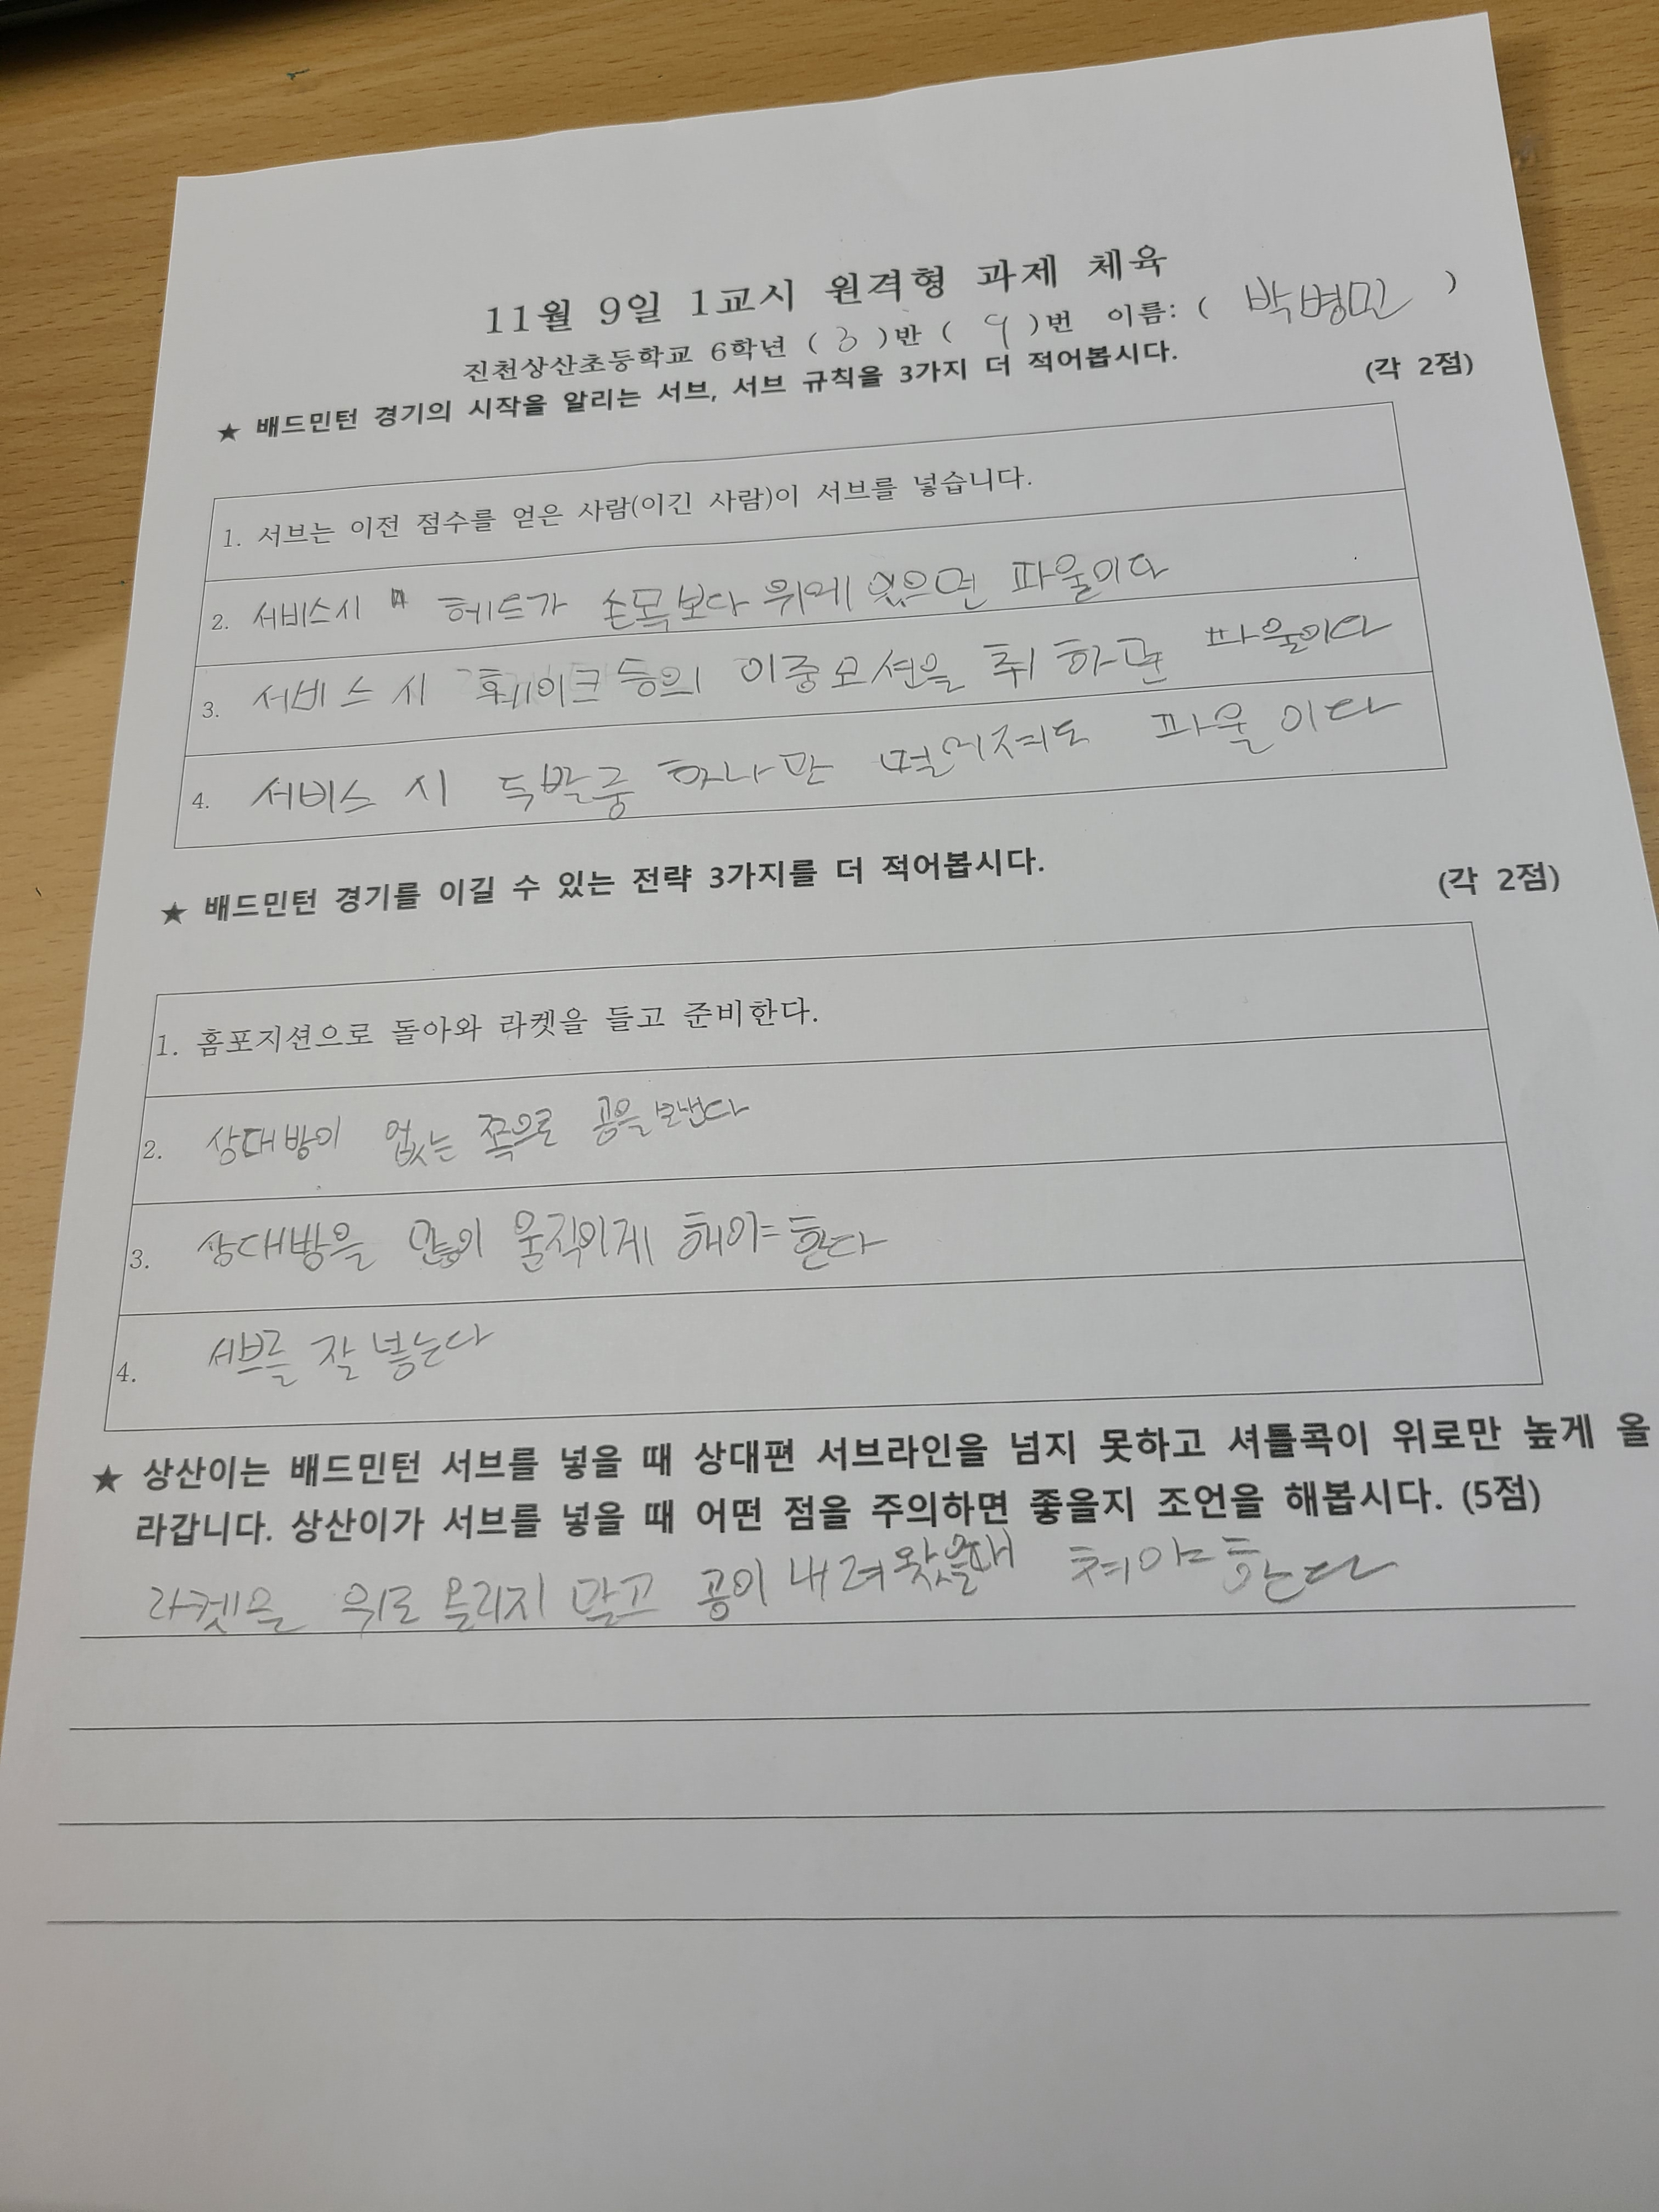 11월 9일 1교시 원격형 과제 체육
진천상산초등학교 6학년 ( 3 )반 ( 9 )번 이름: ( 박병민 )
★ 배드민턴 경기의 시작을 알리는 서브, 서브 규칙을 3가지 더 적어봅시다.
(각 2점)
1. 서브는 이전 점수를 얻은 사람(이긴 사람)이 서브를 넣습니다.
2. 서비스시 헤드가 손목보다 위에 있으면 파울이다
3. 서비스 시 훼이크 등의 이중모션을 취 하면 파울이다
4. 서비스 시 두발중 하나만 떨어져도 파울이다
★ 배드민턴 경기를 이길 수 있는 전략 3가지를 더 적어봅시다.
(각 2점)
1. 홈포지션으로 돌아와 라켓을 들고 준비한다.
2. 상대방이 없는 쪽으로 공을 보낸다
3. 상대방을 많이 움직이게 해야 한다
4. 서브를 잘 넣는다
★ 상산이는 배드민턴 서브를 넣을 때 상대편 서브라인을 넘지 못하고 셔틀콕이 위로만 높게 올
라갑니다. 상산이가 서브를 넣을 때 어떤 점을 주의하면 좋을지 조언을 해봅시다. (5점)
라켓을 위로 올리지 말고 공이 내려왔을때 쳐야 한다